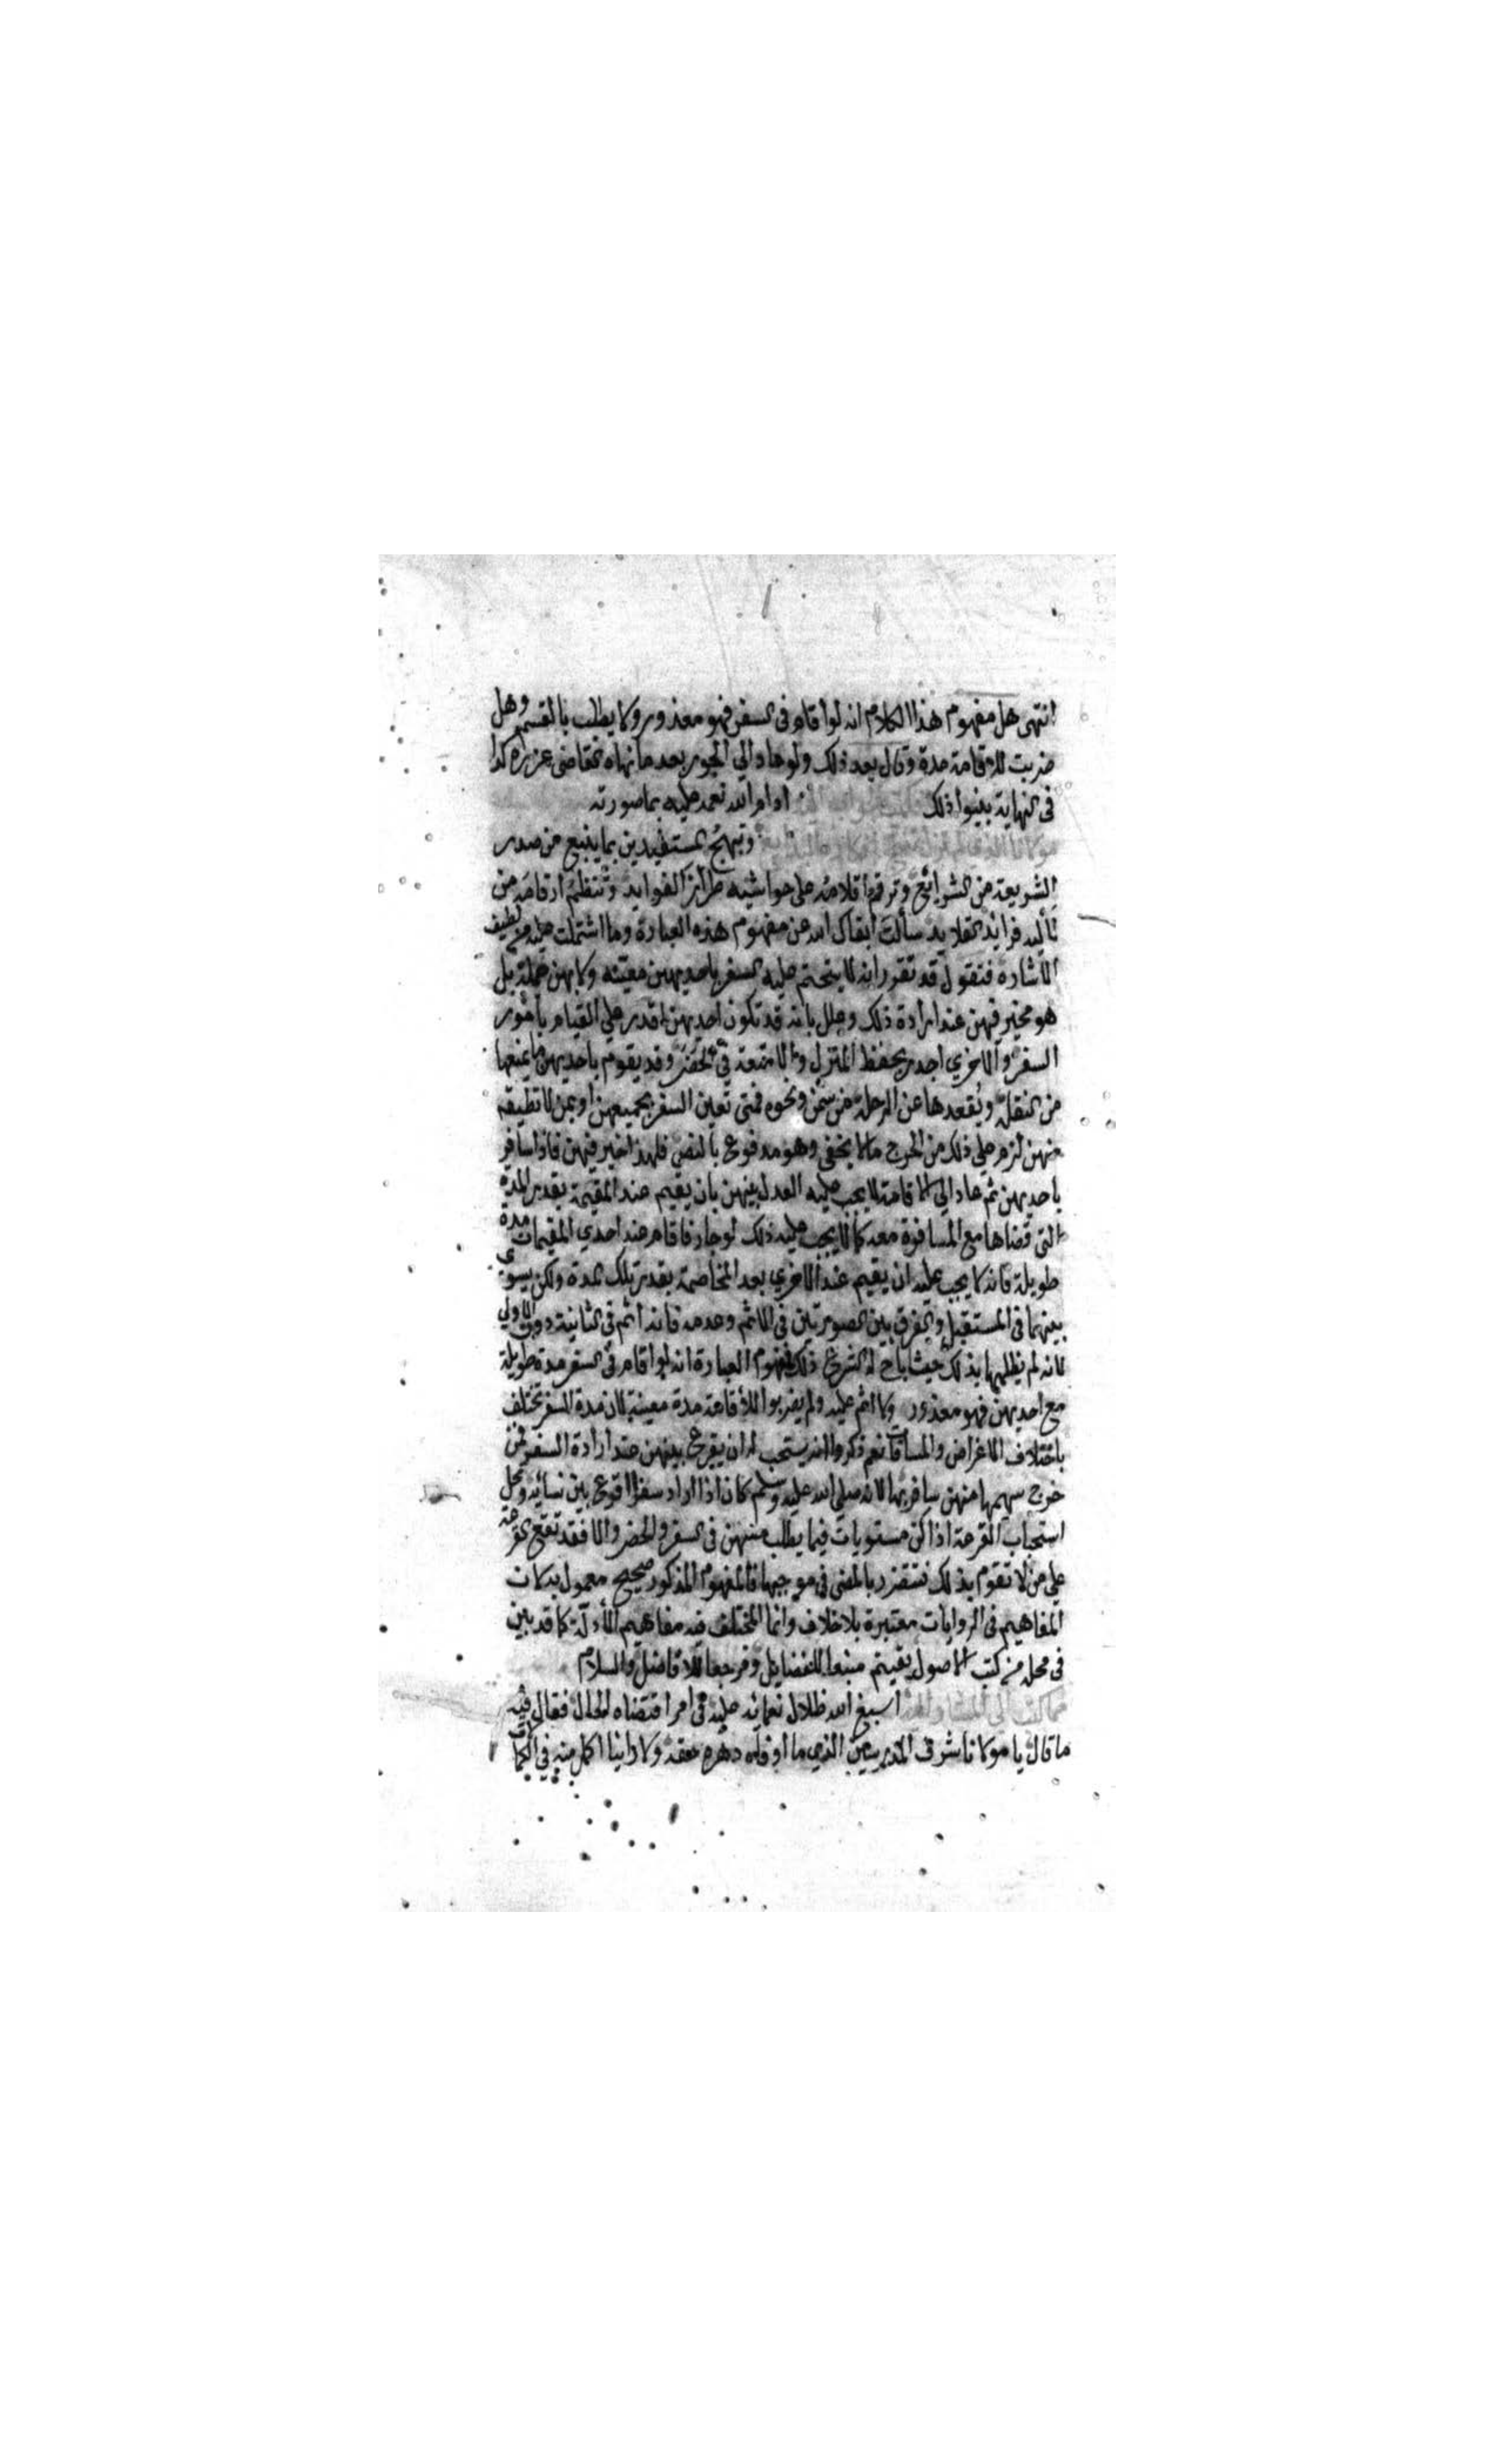 انتهى هل مفهوم هذا الكلام انه لو أقام في السفر فهو معذور ولا يطلب بالقسم وهل
ضربت للاقامة مدة وقال بعد ذلك ولو عاد الي الجور بعد ما نهاه القاضى عزره كذا
في النهاية بينوا ذلك ادام الله نعمه عليه بما صورته
وتبهج المستفيدين بما ينبع من صدر
الشريعة من الشرائع وترقم اقلامه على حواشيه طرائز الفوايد وتنظم ارقامه من
فرائد القلايد سألت أبقاك الله عن مفهوم هذه العبارة وما اشتملت عليه من لطيف
الاشارة فنقول قد تقرر انه لا يتحتم عليه السفر باحديهن معينه ولا بهن جملة بل
هو مخير فيهن عند ارادة ذلك وعلل بانه قد تكون احديهن اقدر علي القيام بامور
السفر والاخري اجدر بحفظ المنزل والامتعة في الحضر وقد يقوم باحديهن ما يمنعها
من النقل ويقعدها عن الرحلة من سمن ونحوه فمتى تعين السفر بجميعهن او بمن لا تطيقه
منهن لزم علي ذلك من الحرج ما لا يخفى وهو مدفوع بالنص فلهذا خير فيهن فاذا سافر
باحديهن ثم عاد الي الاقامة لا يجب عليه العدل بينهن بان يقيم عند المقيمة بقدر المدة
التى قضاها مع المسافرة معه كما لا يجب عليه ذلك لو جار فاقام عند احدي المقيمات مدة
طويلة فانه لا يجب عليه ان يقيم عند الاخري بعد المخاصمة بقدر تلك المدة ولكن يسوى
بينهما في المستقبل والفرق بين الصورتين في الاثم وعدمه فانه اثم في الثانية دون الاولي
لانه لم يظلمها بذلك حيث اباح له الشرع ذلك فمفهوم العبارة انه لو اقام في السفر مدة طويلة
مع احديهن فهو معذور ولا اثم عليه ولم يضربوا للأقامة مدة معينة لان مدة السفر تختلف
باختلاف الاغراض والمسافات نعم ذكروا انه يستحب له ان يقرع بينهن عند ارادة السفر فمن
خرج سهمها منهن سافر بها لانه صلي الله عليه وسلم كان اذا اراد سفرا اقرع بين نسائه ومحل
استحباب القرعة اذا كن مستويات فيما يطلب منهن في السفر والحضر والا فقد تقع القرعة
علي من لا تقوم بذلك فتتضرر بالمضى في موجبها فالمفهوم المذكور صحيح معمول به لان
المفاهيم في الروايات معتبرة بلا خلاف وانما المختلف فيه مفاهيم الأدلة كما قد بين
في محله من كتب الاصول بقيتم منبعا للفضايل ومرجعا للافاضل والسلام
أسبغ الله ظلال نعمائه عليه في امر اقتضاه الحال فقال فيه
ما قال يا مولانا شرف المدرسين الذي ما اوفاه دهره حقه ولا راينا اكمل منه في الكمالات